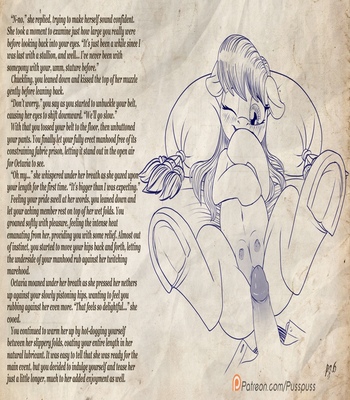 "N-no," she replied, trying to make herself sound confident.
She took a moment to examine just how large you really were
before looking back into your eyes. "It's just been a while since I
was last with a stallion, and well... I've never been with
somepony with your..umm, stature before."
Chuckling, you leaned down and kissed the top of her muzzle
gently before leaning back.
"Don't worry," you say as you started to unbuckle your belt,
causing her eyes to shift downward. "We'll go slow."
With that you tossed your belt to the floor, then unbuttoned
your pants. You finally let your fully erect manhood free of its
constraining fabric prison, letting it stand out in the open air
for Octavia to see.
"Oh my..." she whispered under her breath as she gazed upon
your length for the first time. "It's bigger than I was expecting."
Feeling your pride swell at her words, you leaned down and
let your aching member rest on top of her wet folds. You
groaned softly with pleasure, feeling the intense heat
emanating from her, providing you with some relief. Almost out
of instinct, you started to move your hips back and forth, letting
the underside of your manhood rub against her twitching
marehood.
Octavia moaned under her breath as she pressed her nethers
up against your slowly pistoning hips, wanting to feel you
rubbing against her even more. "That feels so delightful..." she
cooed.
You continued to warm her up by hot-dogging yourself
between her slippery folds, coating your entire length in her
natural lubricant. It was easy to tell that she was ready for the
main event, but you decided to indulge yourself and tease her
just a little longer, much to her added enjoyment as well.
Patreon.com/Pusspuss
pg.6